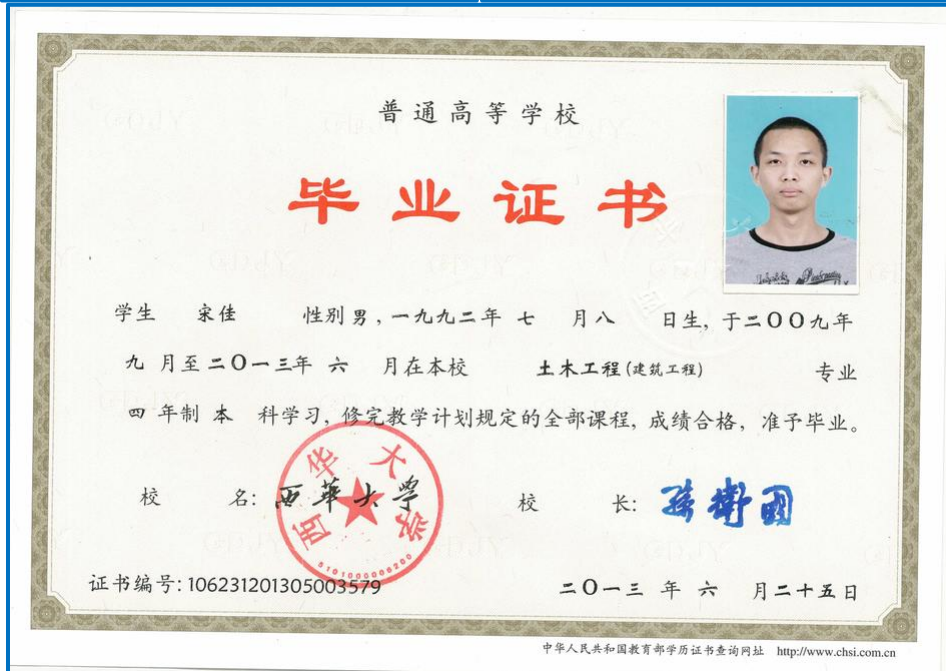 普通高等学校
毕业证书
学生 宋佳 性别 男，一九九二年 七 月 八 日生，于二〇〇九年
九 月至二〇一三年 六 月在本校 土木工程(建筑工程) 专业
四 年制 本 科学习，修完教学计划规定的全部课程，成绩合格，准予毕业。
校 名：西華大學 校 长：孫衛國
西华大学
5101000006200
证书编号：106231201305003579 二〇一三 年 六 月二十五日
中华人民共和国教育部学历证书查询网址 http://www.chsi.com.cn